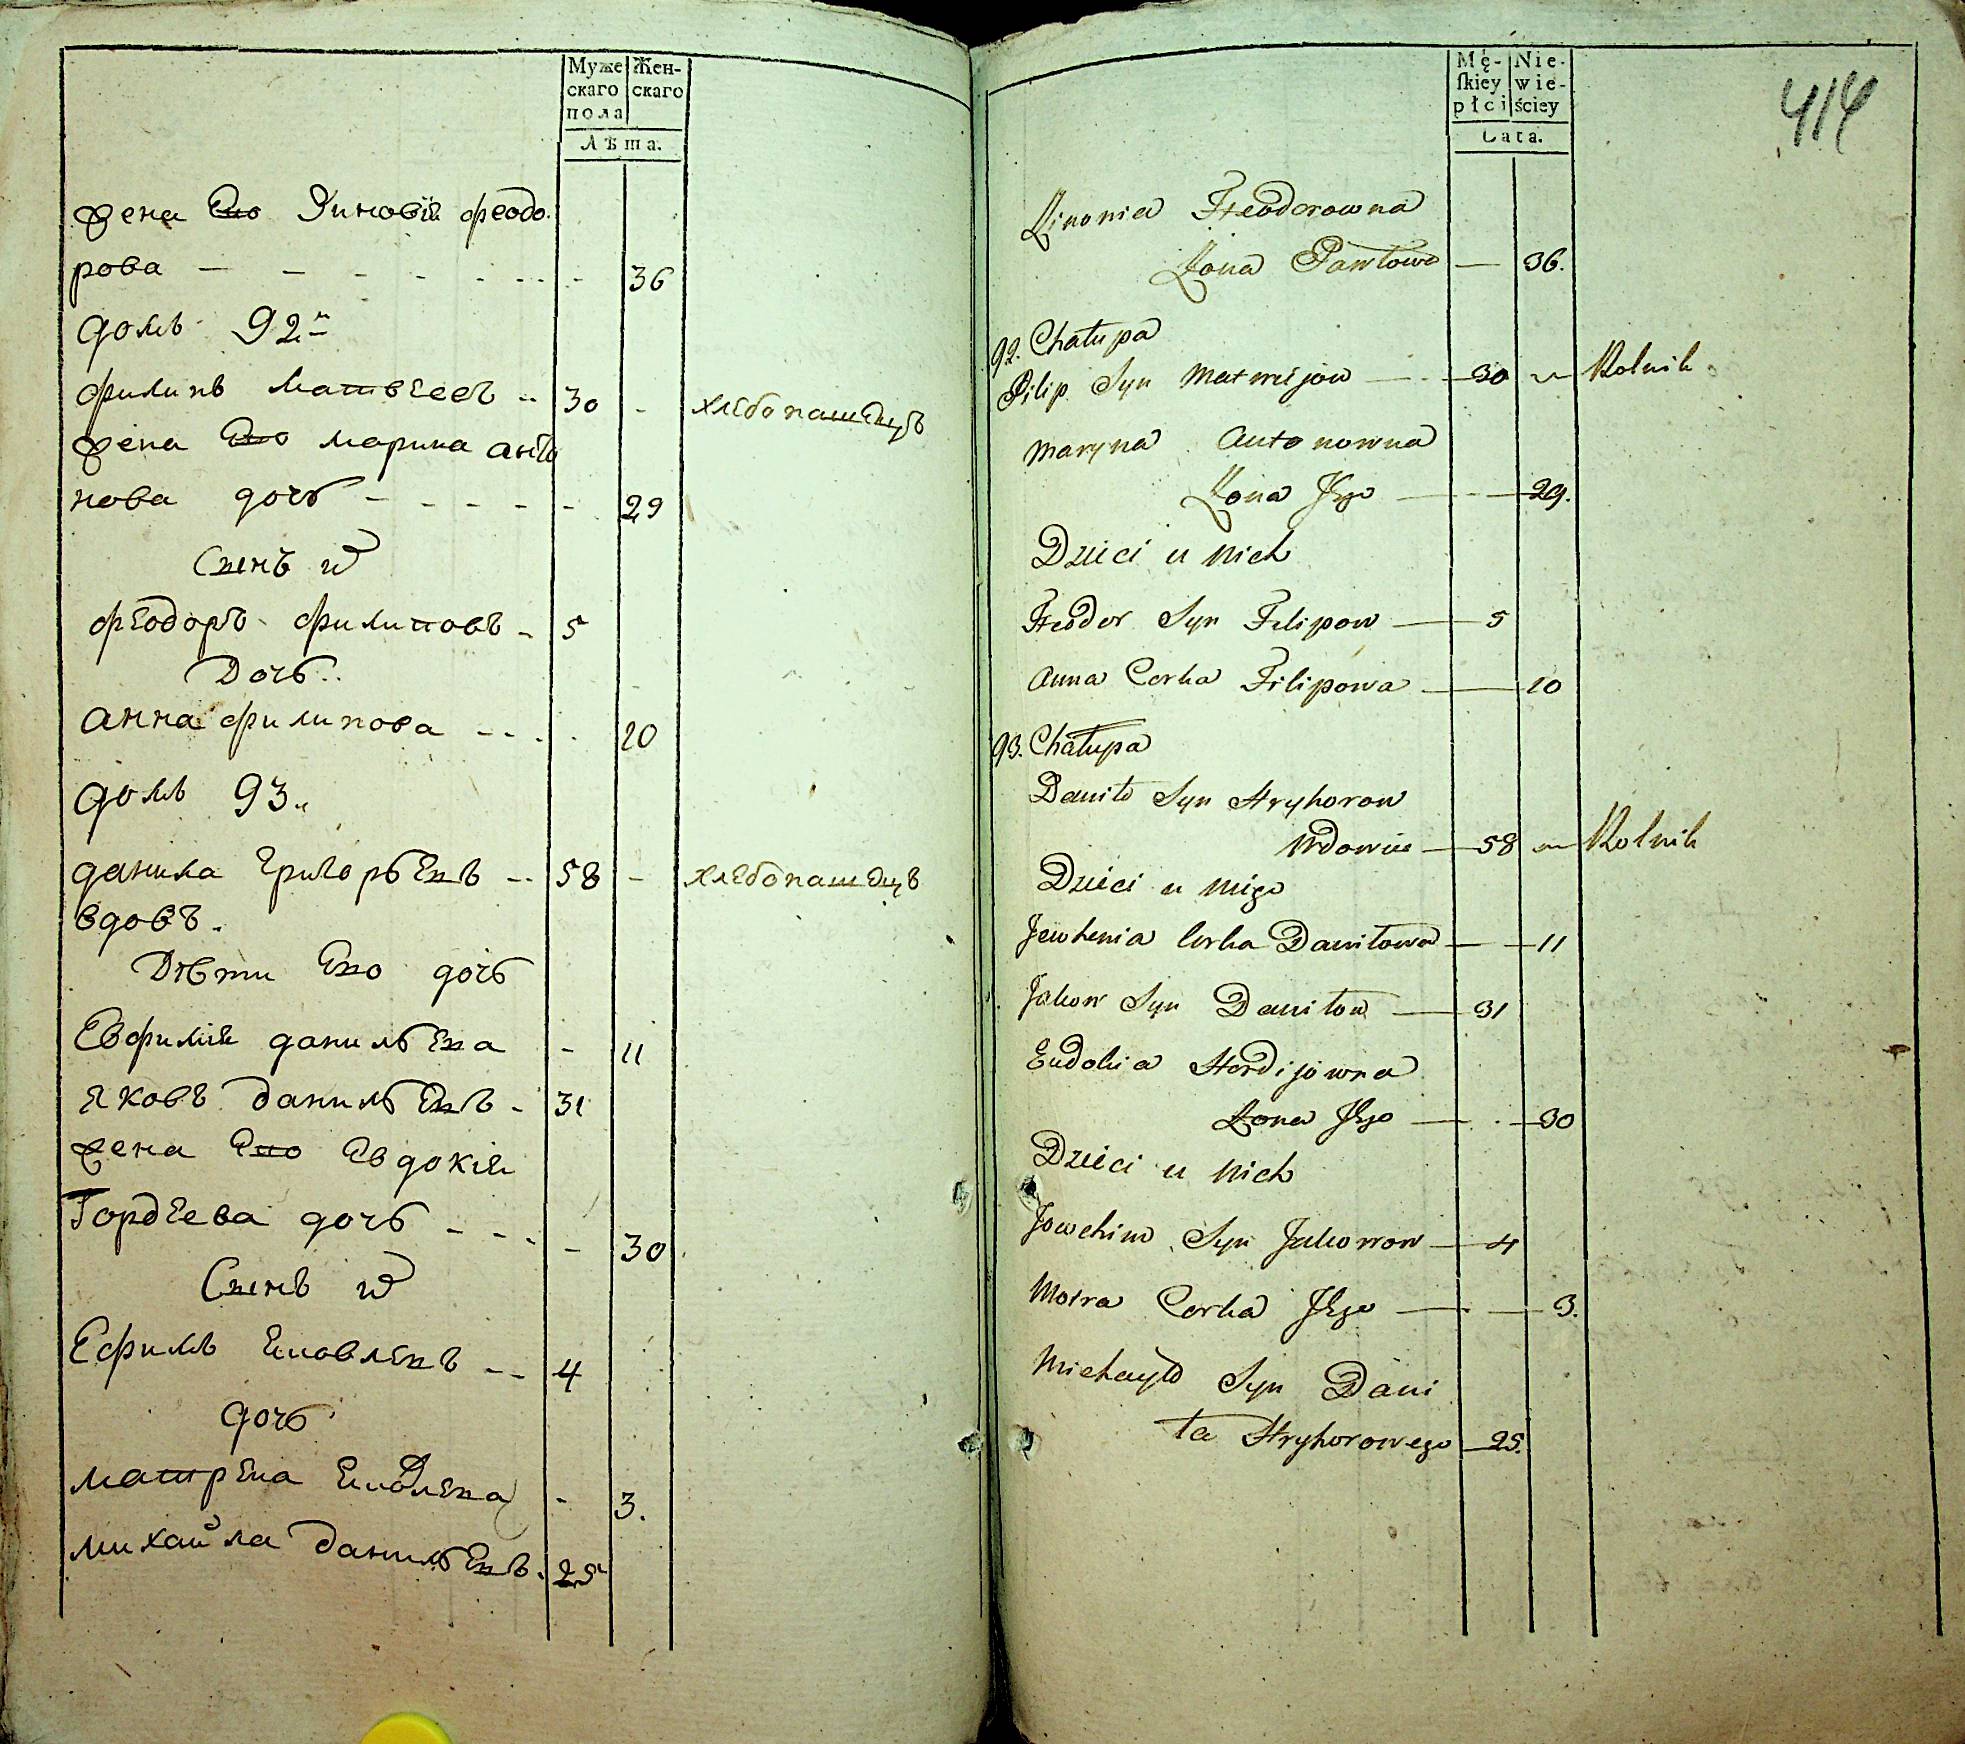 Муже
скаго
пола
Жен-
скаго
Лѣта.
жена Его Зиновія феодо
рова 36
домъ 92й
филипъ матвеевъ 30 хлебопашецъ
жена Его марина анто
нова дочь 29
Сынъ
феодоръ филиповъ 5
Дочь
анна филипова 10
домъ 93й
данила григорьевъ 58 хлебопашецъ
вдовъ.
Дѣти Его дочь
Евфимія данильева 11
яковъ данильевъ 31
жена Его Евдокія
Гордеева дочь 30
Сынъ
Ефимъ яковлевъ 4
дочь
матрена яковлева 3.
михайла данильевъ 25
Mę-
ſkiey
płci
Nie-
wie-
ściey
Lata.
414
Zinonia Fteodorowna
Żona Pawłowa 36.
92. Chałupa
Pilip Syn Matwijow 30 Rolnik
Maryna Antonowna
Żona Jego 29.
Dzieci u nich
Fteodor Syn Filipow 5
Anna Corka Filipowa 10
93. Chałupa
Daniło Syn Hryhorow
Wdowiec 58 Rolnik
Dzieci u niego
Jewhenia Corka Daniłowa 11
Jakow Syn Daniłow 31
Eudokia Hordijowna
Żona Jego 30
Dzieci u nich
Jowchim Syn Jakowow 4
Motra Corka Jego 3.
Michayło Syn Dani
ła Hryhorowego 25.